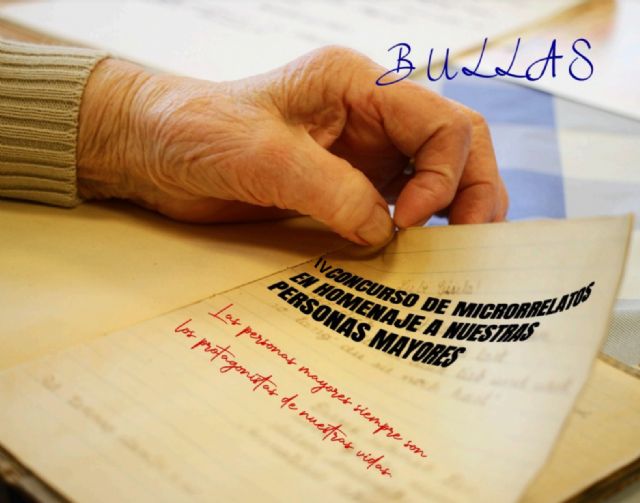 BULLAS
IV CONCURSO DE MICRORRELATOS
EN HOMENAJE A NUESTRAS
PERSONAS MAYORES
Las personas mayores siempre son
los protagonistas de nuestras vidas.